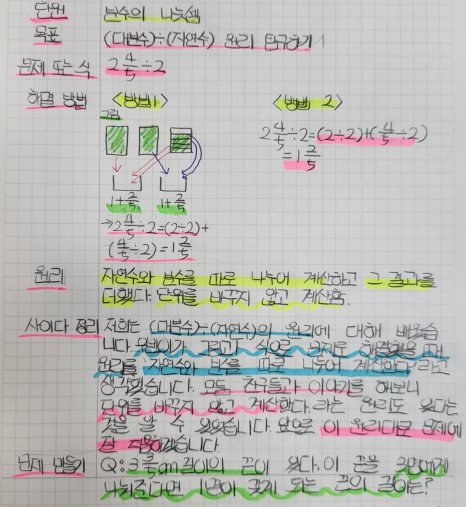 단원 분수의 나눗셈
목표 (대분수)÷(자연수) 원리 탐구하기
문제 또는 식 2 4/5 ÷2
해결 방법 <방법1> <방법 2>
그림
2 4/5 ÷2=(2÷2)+(4/5 ÷2)
=1 2/5
1+2/5 1+2/5
→2 4/5 ÷2=(2÷2)+
(4/5 ÷2)=1 2/5
원리 자연수와 분수를 따로 나누어 계산하고 그 결과를
더했다. 단위를 바꾸지 않고 계산함.
사이다 정리 저희는 (대분수)÷(자연수)의 원리에 대해 배웠습
니다. 그림과 식으로 문제를 해결했을 때
원리를 자연수와 분수를 따로 나누어 계산한다 라고
생각했습니다. 모든 친구들과 이야기를 해보니
단위를 바꾸지 않고 계산했다. 라는 원리도 있다는
것을 알 수 있었습니다. 앞으로 이 원리대로 문제에
잘 적용하겠습니다.
문제 만들기 Q: 3 cm 길이의 끈이 있다. 이 끈을 3명에게
나눠준다면 1명이 갖게 되는 끈의 길이는?